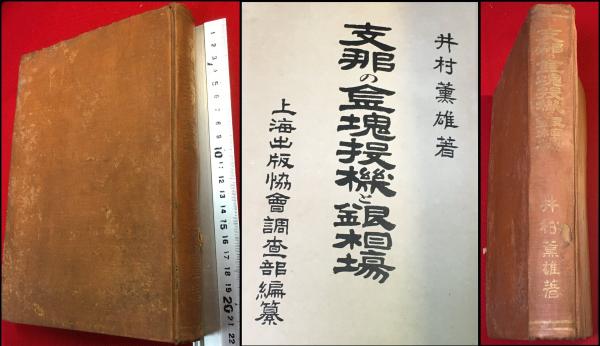 1 2 3 4 5 6 7 8 9 10 11 12 13 14 15 16 17 18 19 20 21 22
井村薫雄著
支那の金塊投機と銀相場
上海出版協會調査部編纂
支那の金塊投機と銀相場
井村薫雄著